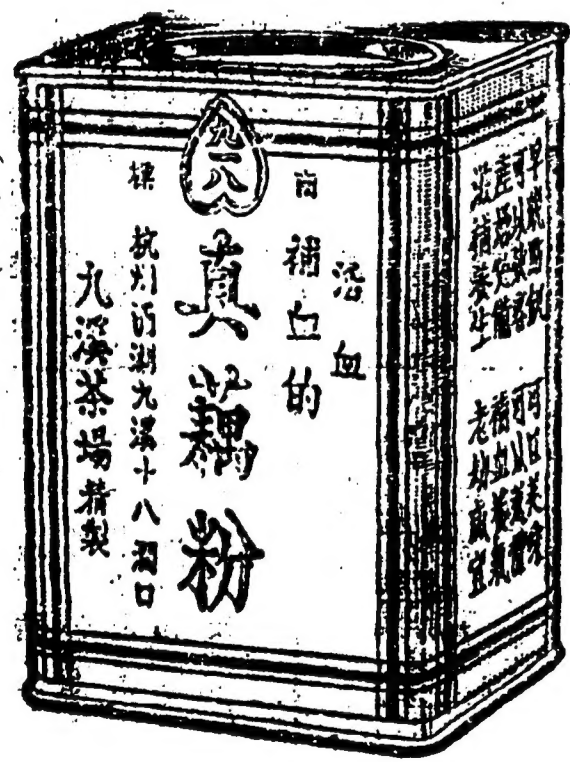 九一八
商標
活血
補血的
真藕粉
杭州西湖九溪十八澗口
九溪茶場精製
早晚
可以敬客
滋補養生
可口美味
可以
補血養氣
老幼咸宜